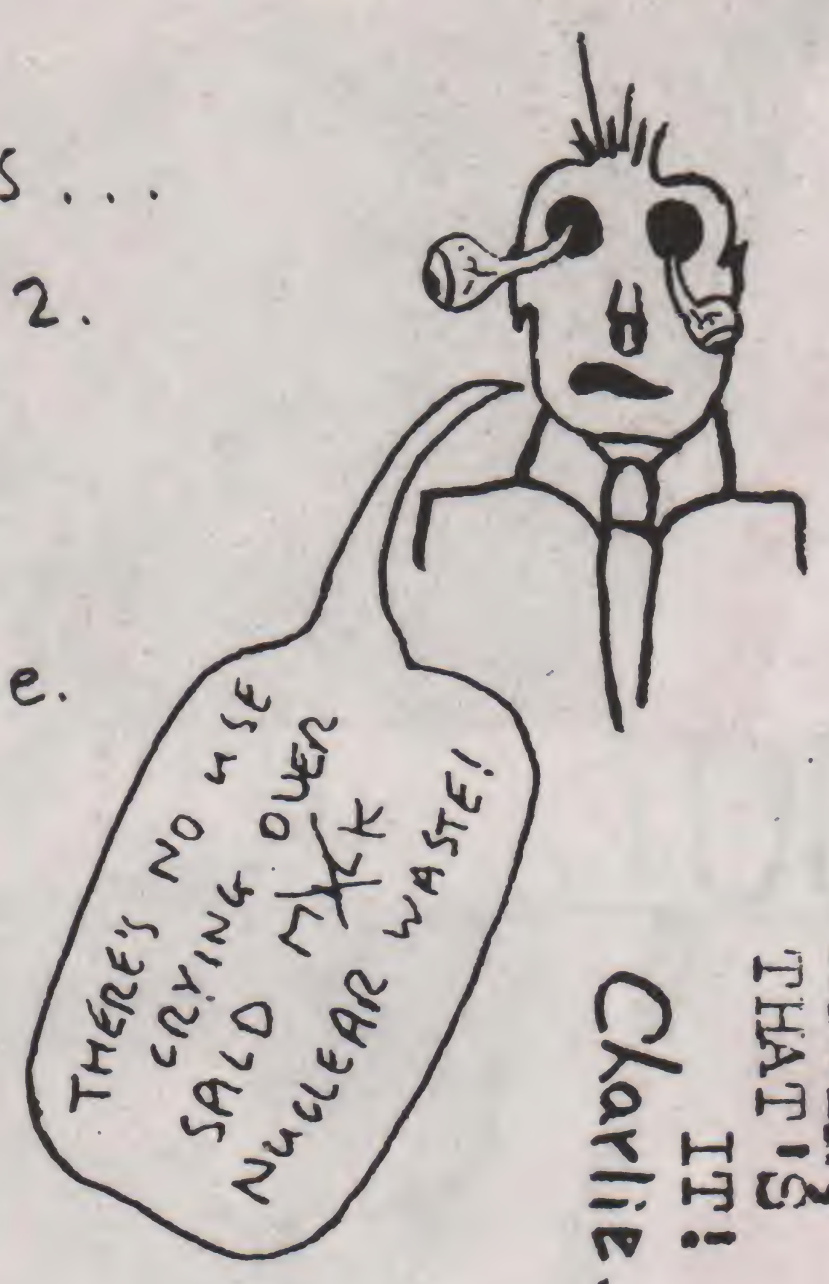 s ...
2.
e.
THERE'S NO USE
CRYING OVER
SALD MILK
NUCLEAR WASTE!
THAT'S
IT!
Charlie.